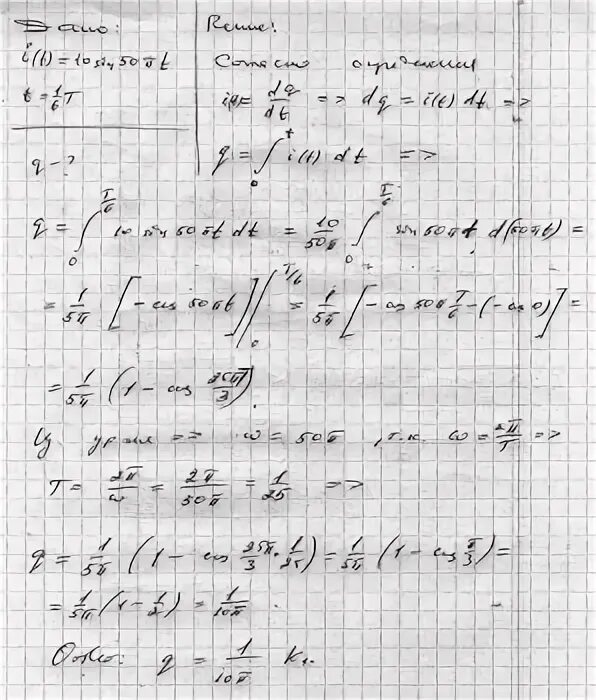 Дано:
i(t) = 10 sin 50πt
t = 1/6 T
q - ?
Решение:
Согласно определения
i(t) = dq/dt => dq = i(t) dt =>
q = ∫₀ᵗ i(t) dt =>
q = ∫₀^(T/6) 10 sin 50πt dt = 10/50π ∫₀^(T/6) sin 50πt d(50πt) =
= 1/5π [-cos 50πt] |₀^(T/6) = 1/5π [-cos 50π T/6 - (-cos 0)] =
= 1/5π (1 - cos 25πT/3).
Из => ω = 50π, т.к. ω = 2π/T =>
T = 2π/ω = 2π/50π = 1/25 =>
q = 1/5π (1 - cos 25π/3 · 1/25) = 1/5π (1 - cos π/3) =
= 1/5π (1 - 1/2) = 1/10π
Ответ: q = 1/10π Кл.